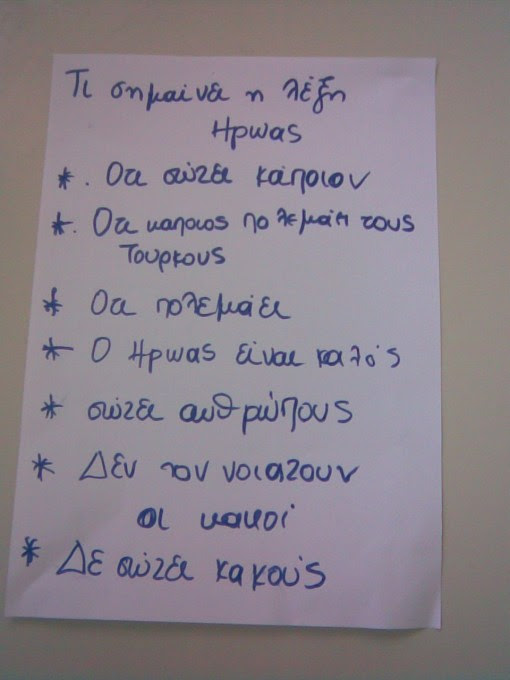 Τι σημαίνει η λέξη
Ηρωας
* . Οτι σώζει κάποιον
* . Οτι καποιος πολεμάει τους
Τουρκους
* Οτι πολεμάει
* Ο Ηρωας είναι καλός
* σώζει ανθρώπους
* Δεν τον νοιαζουν
οι κακοί
* Δε σώζει κακούς